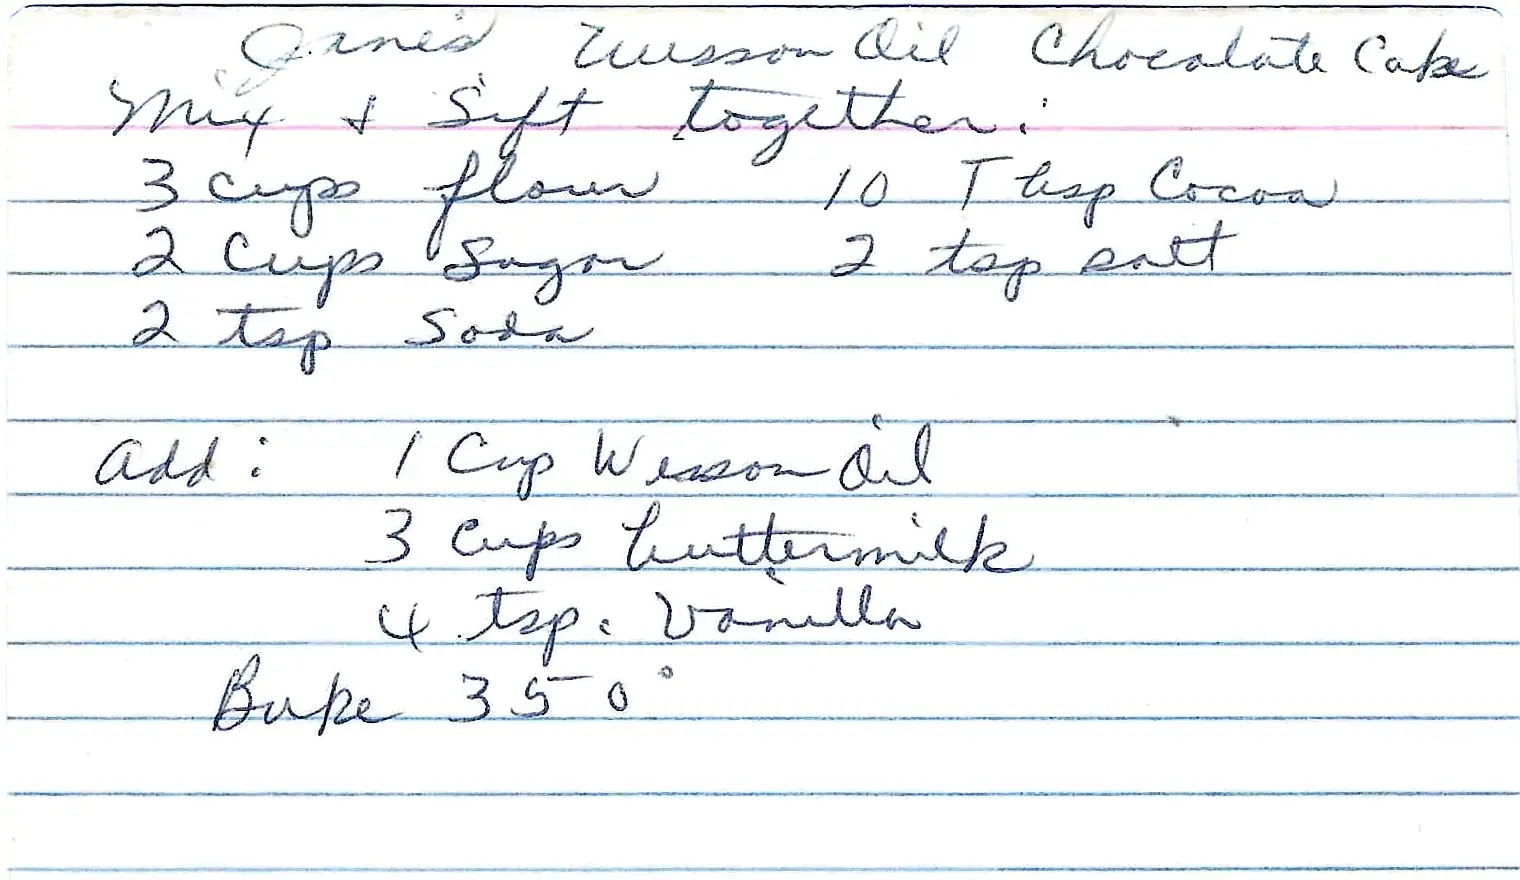 Jane's Wesson Oil Chocolate Cake
Mix & Sift together:
3 cups flour 10 Tbsp Cocoa
2 Cups Sugar 2 tsp salt
2 tsp Soda
Add: 1 Cup Wesson Oil
3 Cups buttermilk
4 tsp. Vanilla
Bake 350°